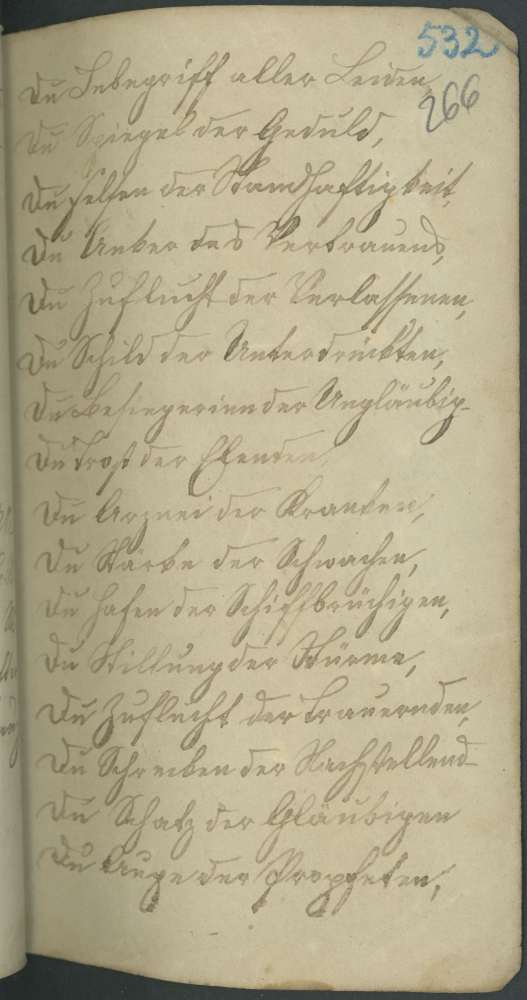 532
266
Du Inbegriff aller Leiden,
Du Spiegel der Geduld,
Du Felsen der Standhaftigkeit,
Du Anker des Vertrauens,
Du Zuflucht der Verlassenen,
Du Schild der Unterdrückten,
Du Besiegerinn der Ungläubig-
Du Trost der Elenden,
Du Arznei der Kranken,
Du Stärke der Schwachen,
Du Hafen der Schiffbrüchigen,
Du Stillung der Stürme,
Du Zuflucht der Trauernden,
Du Schrecken der Nachstellend-
Du Schatz der Gläubigen
Du Auge der Propheten,